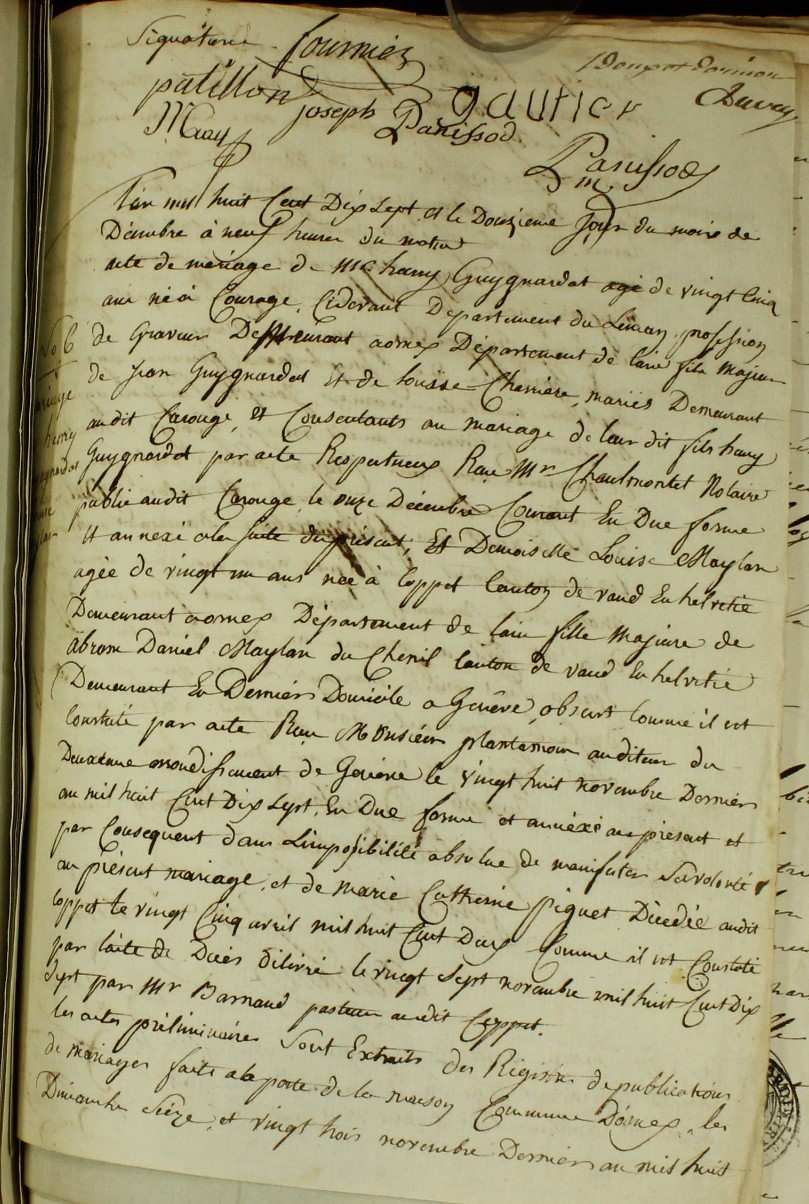 Signature. fournier
patillon joseph gautier
Mury Panissod
Panissod
m.
L'an mil huit Cent Dix sept et le Douzieme Jour du mois de
Décembre à neuf heures du matin
acte de mariage de Mc hany Guygnardat agé de vingt Cinq
ans né à Carouge, Cidevant Département du Léman, profession
de Graveur Demeurant aornex Département de lain fils Majeur
de Jean Guygnardat et de louise Charriere, mariés Demeurant
audit Carouge, et Consentants au mariage de leur dit fils hany
Guygnardat par acte Respectueux Reçu Mr Chaulmontet Notaire
publié audit Carouge le onze Décembre Courant En Due forme
et annexé ala suite du présent, Et Demoiselle Louise Maylan
agée de vingt un ans née à Coppet Canton de vaud En helvetie
Demeurant aornex Département de lain fille Majeure de
abram Daniel Maylan du Chenil Canton de vaud En helvetie
Demeurant En Dernier Domicile a Genève, absent Comme il est
Constaté par acte Reçu Monsieur plantamour auditeur du
Deuxième arrondissement de Genève le vingt huit novembre Dernier
an mil huit Cent Dix sept, En Due forme et annéxé au présent et
par Consequent dans L'impossibilité absolue de manifester Sa volonté
au présent mariage, et de marie Catherine piguet Décédée audit
Coppet le vingt Cinq avril mil huit Cent Dix Comme il est Constaté
par l'acte de Décès délivré le vingt Sept novembre mil huit Cent Dix
Sept par Mr Barnaud pasteur audit Coppet.
les actes préliminaires Sont Extraits des Régistres de publications
de mariages faites ala porte de la maison Commune D'ornex, les
Dimanche Sieze, et vingt trois novembre Dernier an mil huit